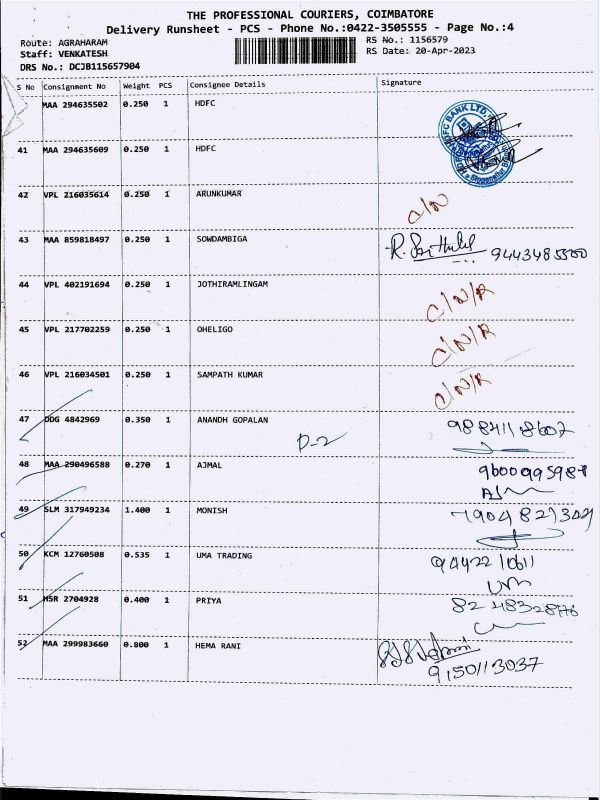 THE PROFESSIONAL COURIERS, COIMBATORE
Delivery Runsheet - PCS - Phone No.:0422-3505555 - Page No.:4
Route: AGRAHARAM
RS No.: 1156579
Staff: VENKATESH
RS Date: 20-Apr-2023
DRS No.: DCJB115657904
S No Consignment No Weight PCS Consignee Details Signature
MAA 294635502 0.250 1 HDFC
HDFC BANK LTD.
41 MAA 294635609 0.250 1 HDFC
42 VPL 216035614 0.250 1 ARUNKUMAR
C/N
43 MAA 859818497 0.250 1 SOWDAMBIGA
R. 9443485500
44 VPL 402191694 0.250 1 JOTHIRAMLINGAM
C/N/R
45 VPL 217702259 0.250 1 OHELIGO
C/N/R
46 VPL 216034501 0.250 1 SAMPATH KUMAR
C/N/R
47 DDG 4842969 0.350 1 ANANDH GOPALAN
9884118607
D-2
48 MAA 290496588 0.270 1 AJMAL
9600995984
49 SLM 317949234 1.400 1 MONISH
50 KCM 12760508 0.535 1 UMA TRADING
9442210611
51 HSR 2704928 0.400 1 PRIYA
8248328876
52 MAA 299983660 0.800 1 HEMA RANI
9150113037